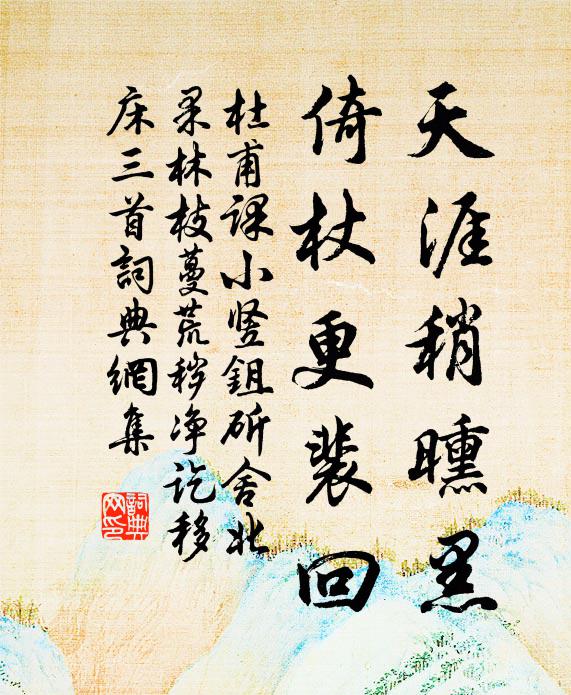 天涯稍曛黑
倚杖更裴回
杜甫课小竖鉏斫舍北
果林枝蔓荒秽净讫移
床三首詞典網集
詞典
网印